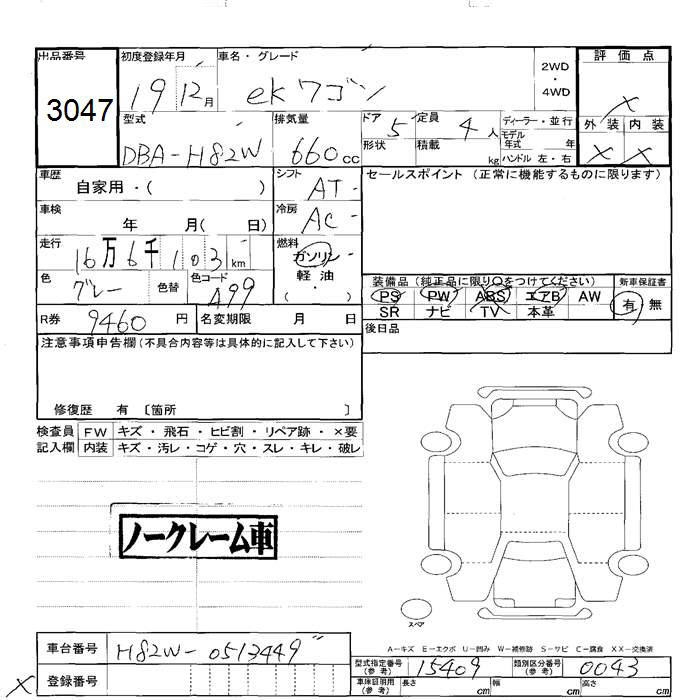 出品番号 初度登録年月 車名・グレード 評価点
3047 19 12月 ekワゴン 2WD・4WD ×
型式 排気量 ドア 定員 ディーラー・並行 外装 内装
DBA-H82W 660cc 5 4人 モデル年式 年 × ×
形状 積載 kg ハンドル 左・右
車歴 自家用・( ) シフト AT セールスポイント (正常に機能するものに限ります)
車検 年 月( 日) 冷房 AC
走行 16万6千103km 燃料 ガソリン
軽油
(・)
色 グレー 色替 色コード A99 装備品 (純正品に限り〇をつけてください) 新車保証書
PS PW ABS エアB AW 有 無
SR ナビ TV 本革
R券 9460円 名変期限 月 日 後日品
注意事項申告欄(不具合内容等は具体的に記入して下さい)
修復歴 有 〔箇所 〕
検査員 FW キズ・飛石・ヒビ割・リペア跡・×要
記入欄 内装 キズ・汚レ・コゲ・穴・スレ・キレ・破レ
ノークレーム車
スペア
A-キズ E-エクボ U-凹み W-補修跡 S-サビ C-腐食 XX-交換済
車台番号 H82W-0513449
型式指定番号(参考) 15409 類別区分番号(参考) 0043
× 登録番号 車庫証明用(参考) 長さ cm 幅 cm 高さ cm